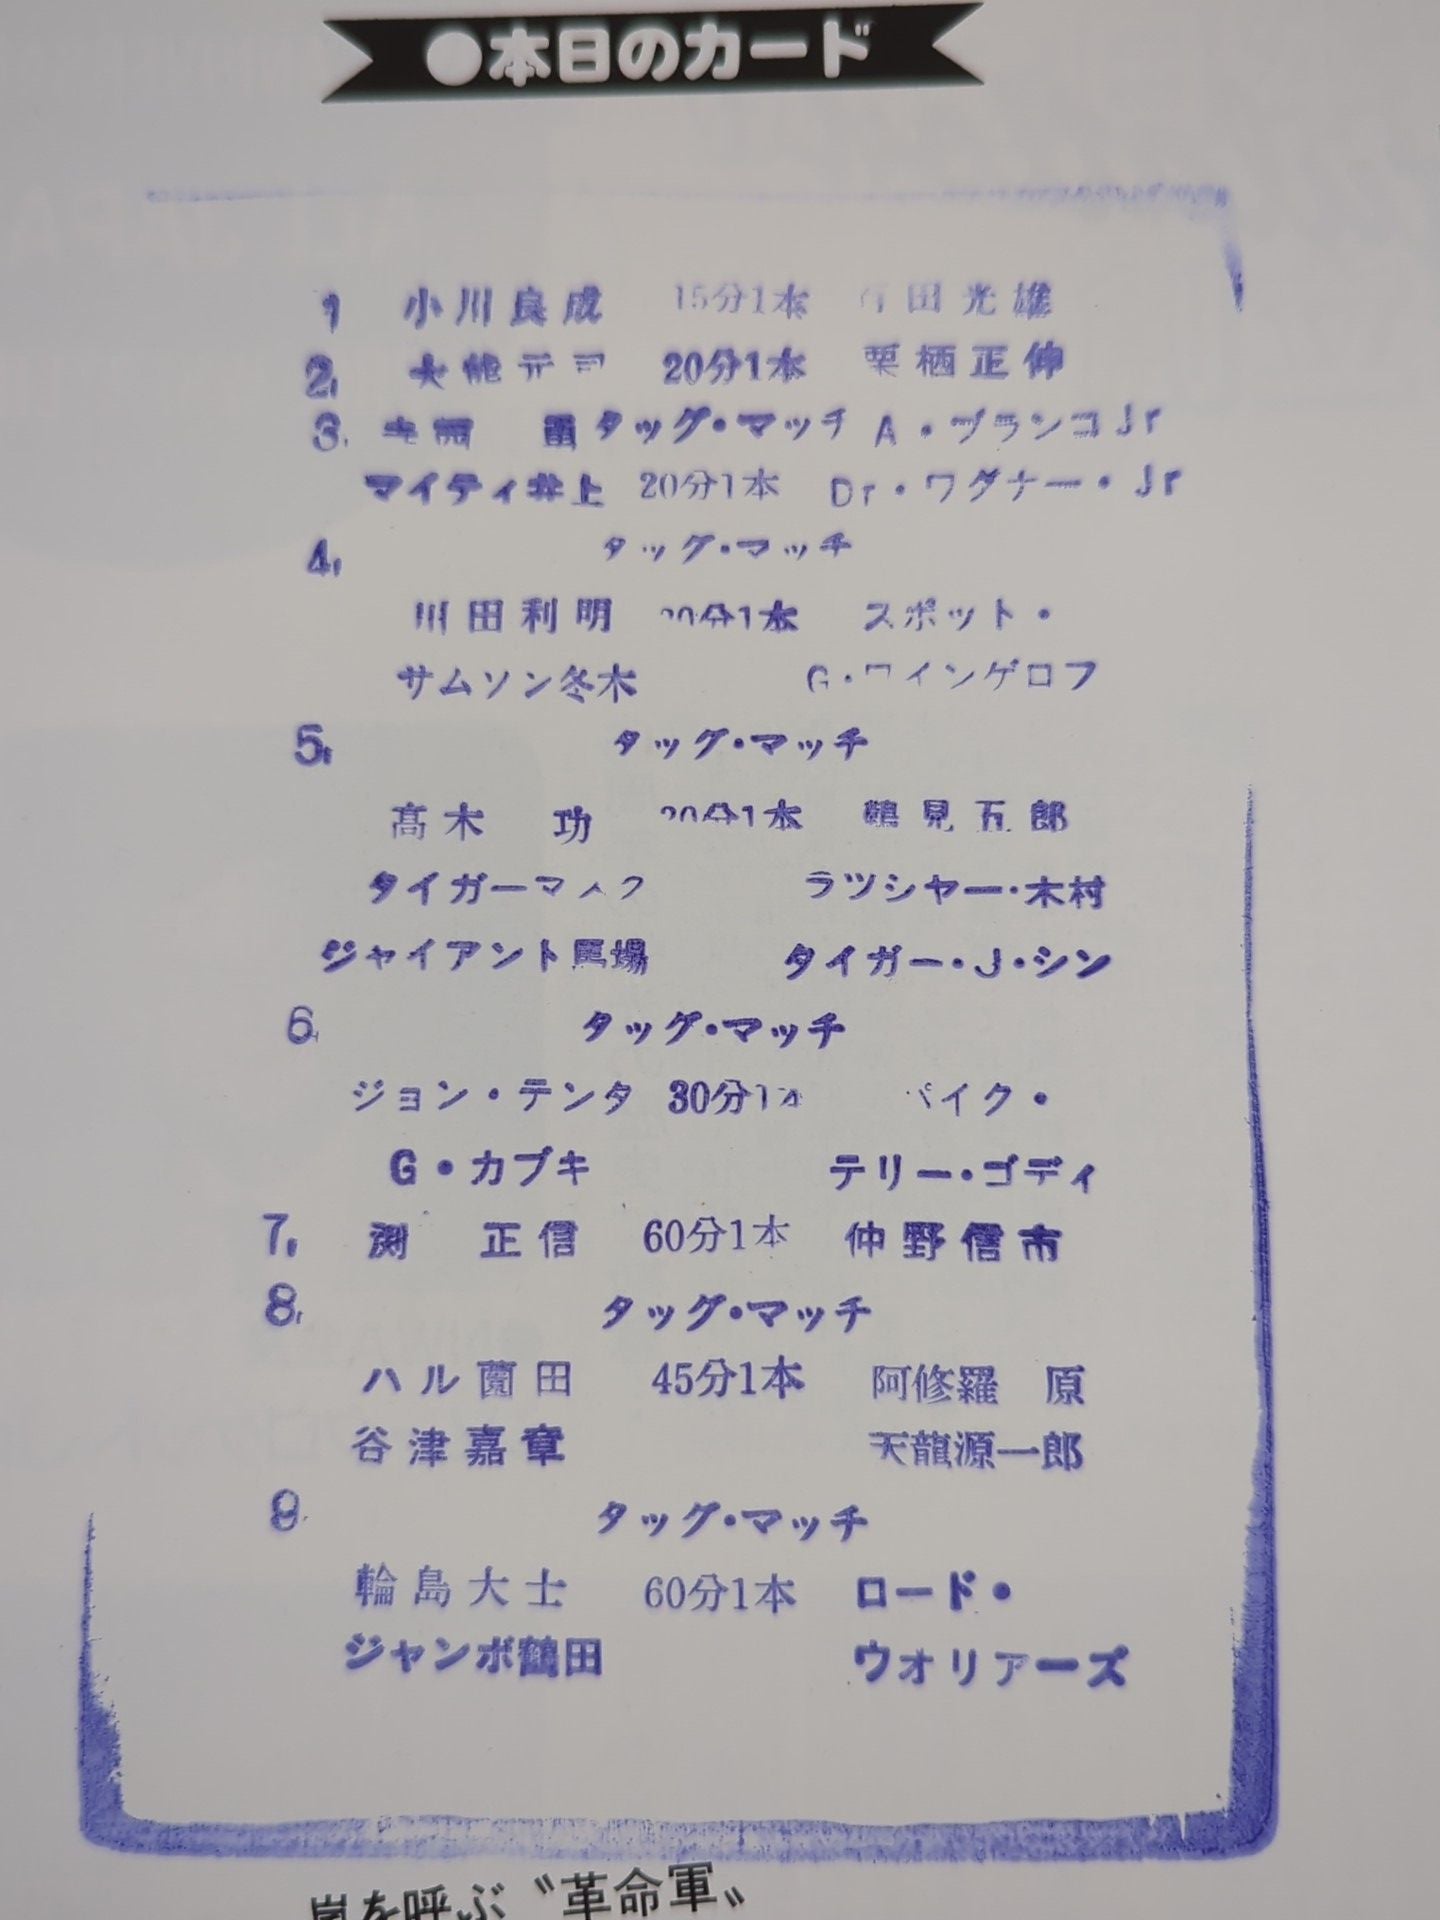 ●本日のカード
1 小川良成 15分1本 田光雄
2. 大熊元司 20分1本 栗栖正伸
3. タッグ・マッチ A・ブランコJr
マイティ井上 20分1本 Dr・ワグナー・Jr
4. タッグ・マッチ
川田利明 20分1本 スポット・
サムソン冬木 G・ワインゲロフ
5. タッグ・マッチ
高木 功 20分1本 鶴見五郎
タイガーマスク ラツシヤー・木村
ジャイアント馬場 タイガー・J・シン
6. タッグ・マッチ
ジョン・テンタ 30分1本 バイク・
G・カブキ テリー・ゴディ
7. 渕 正信 60分1本 仲野信市
8. タッグ・マッチ
ハル薗田 45分1本 阿修羅 原
谷津嘉章 天龍源一郎
9. タッグ・マッチ
輪島大士 60分1本 ロード・
ジャンボ鶴田 ウオリアーズ
嵐を呼ぶ〝革命軍〟